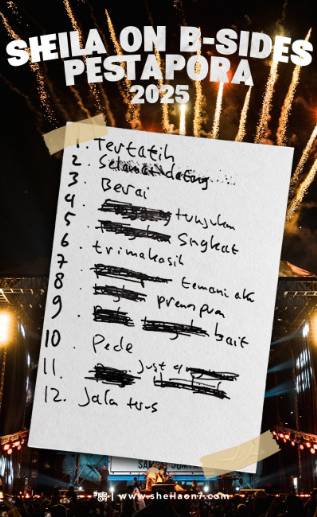 SHEILA ON B-SIDES
PESTAPORA
2025
1. Tertatih
2. Selamat datang
3. Berai
4. tunjukan
5. singkat
6. trimakasih
7. temani aku
8. prempuan
9. bait
10. Pede
11. Just
12. Jalan terus
www.sheilaon7.com